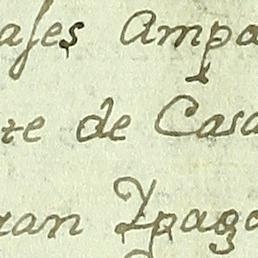 ases Ampa
te de Casa
ran Ypaga